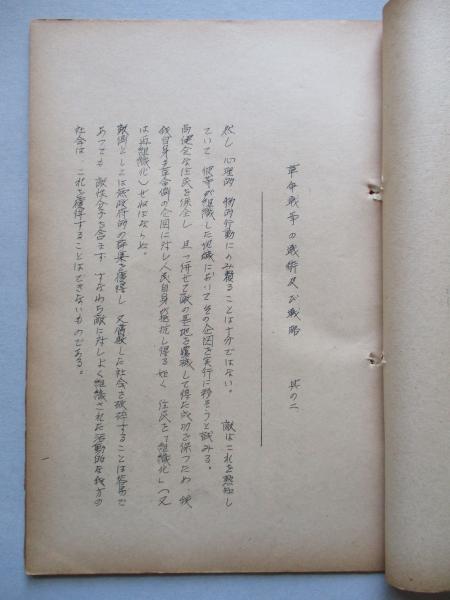 革命戦争の戦術及び戦略 其の二
然し 心理的 物的行動にのみ頼ることは十分ではない。 敵はこれを熟知し
ていて 彼等が組織した地域においてその企図を実行に移そうと試みる。
尚健全な住民を保全し 且つ併せて敵の基地を覆滅して得た成功を保つため、
自身も革命側の企図に対し人民自身が抵抗し得る如く 住民を「組織化」(又
は再組織化)せねばならぬ。
敵側としては無政府的の群集を獲得し 又腐敗した社会を破砕することは容易で
あっても 敵性分子を含まず すなわち敵に対しよく組織された活動的な我方の
社会は これを獲得することはできないものである。